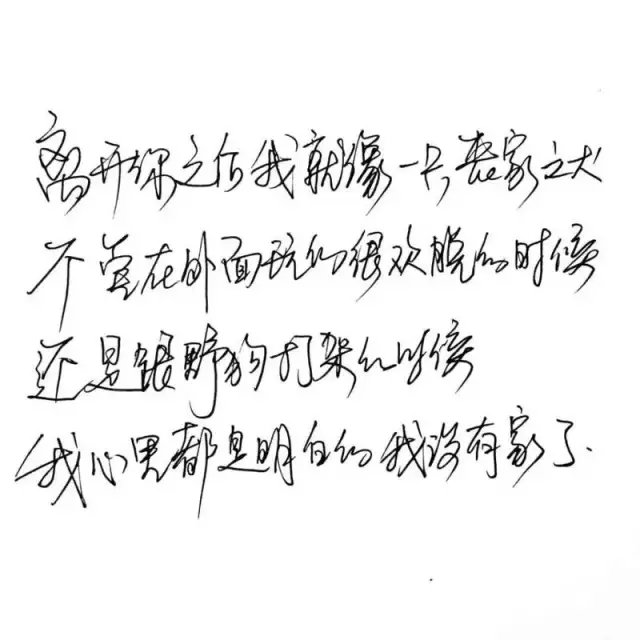 离开你之后我就像一只丧家之犬
不管在外面玩的很欢脱的时候
还是跟野狗打架的时候
我心里都是明白的我没有家了.